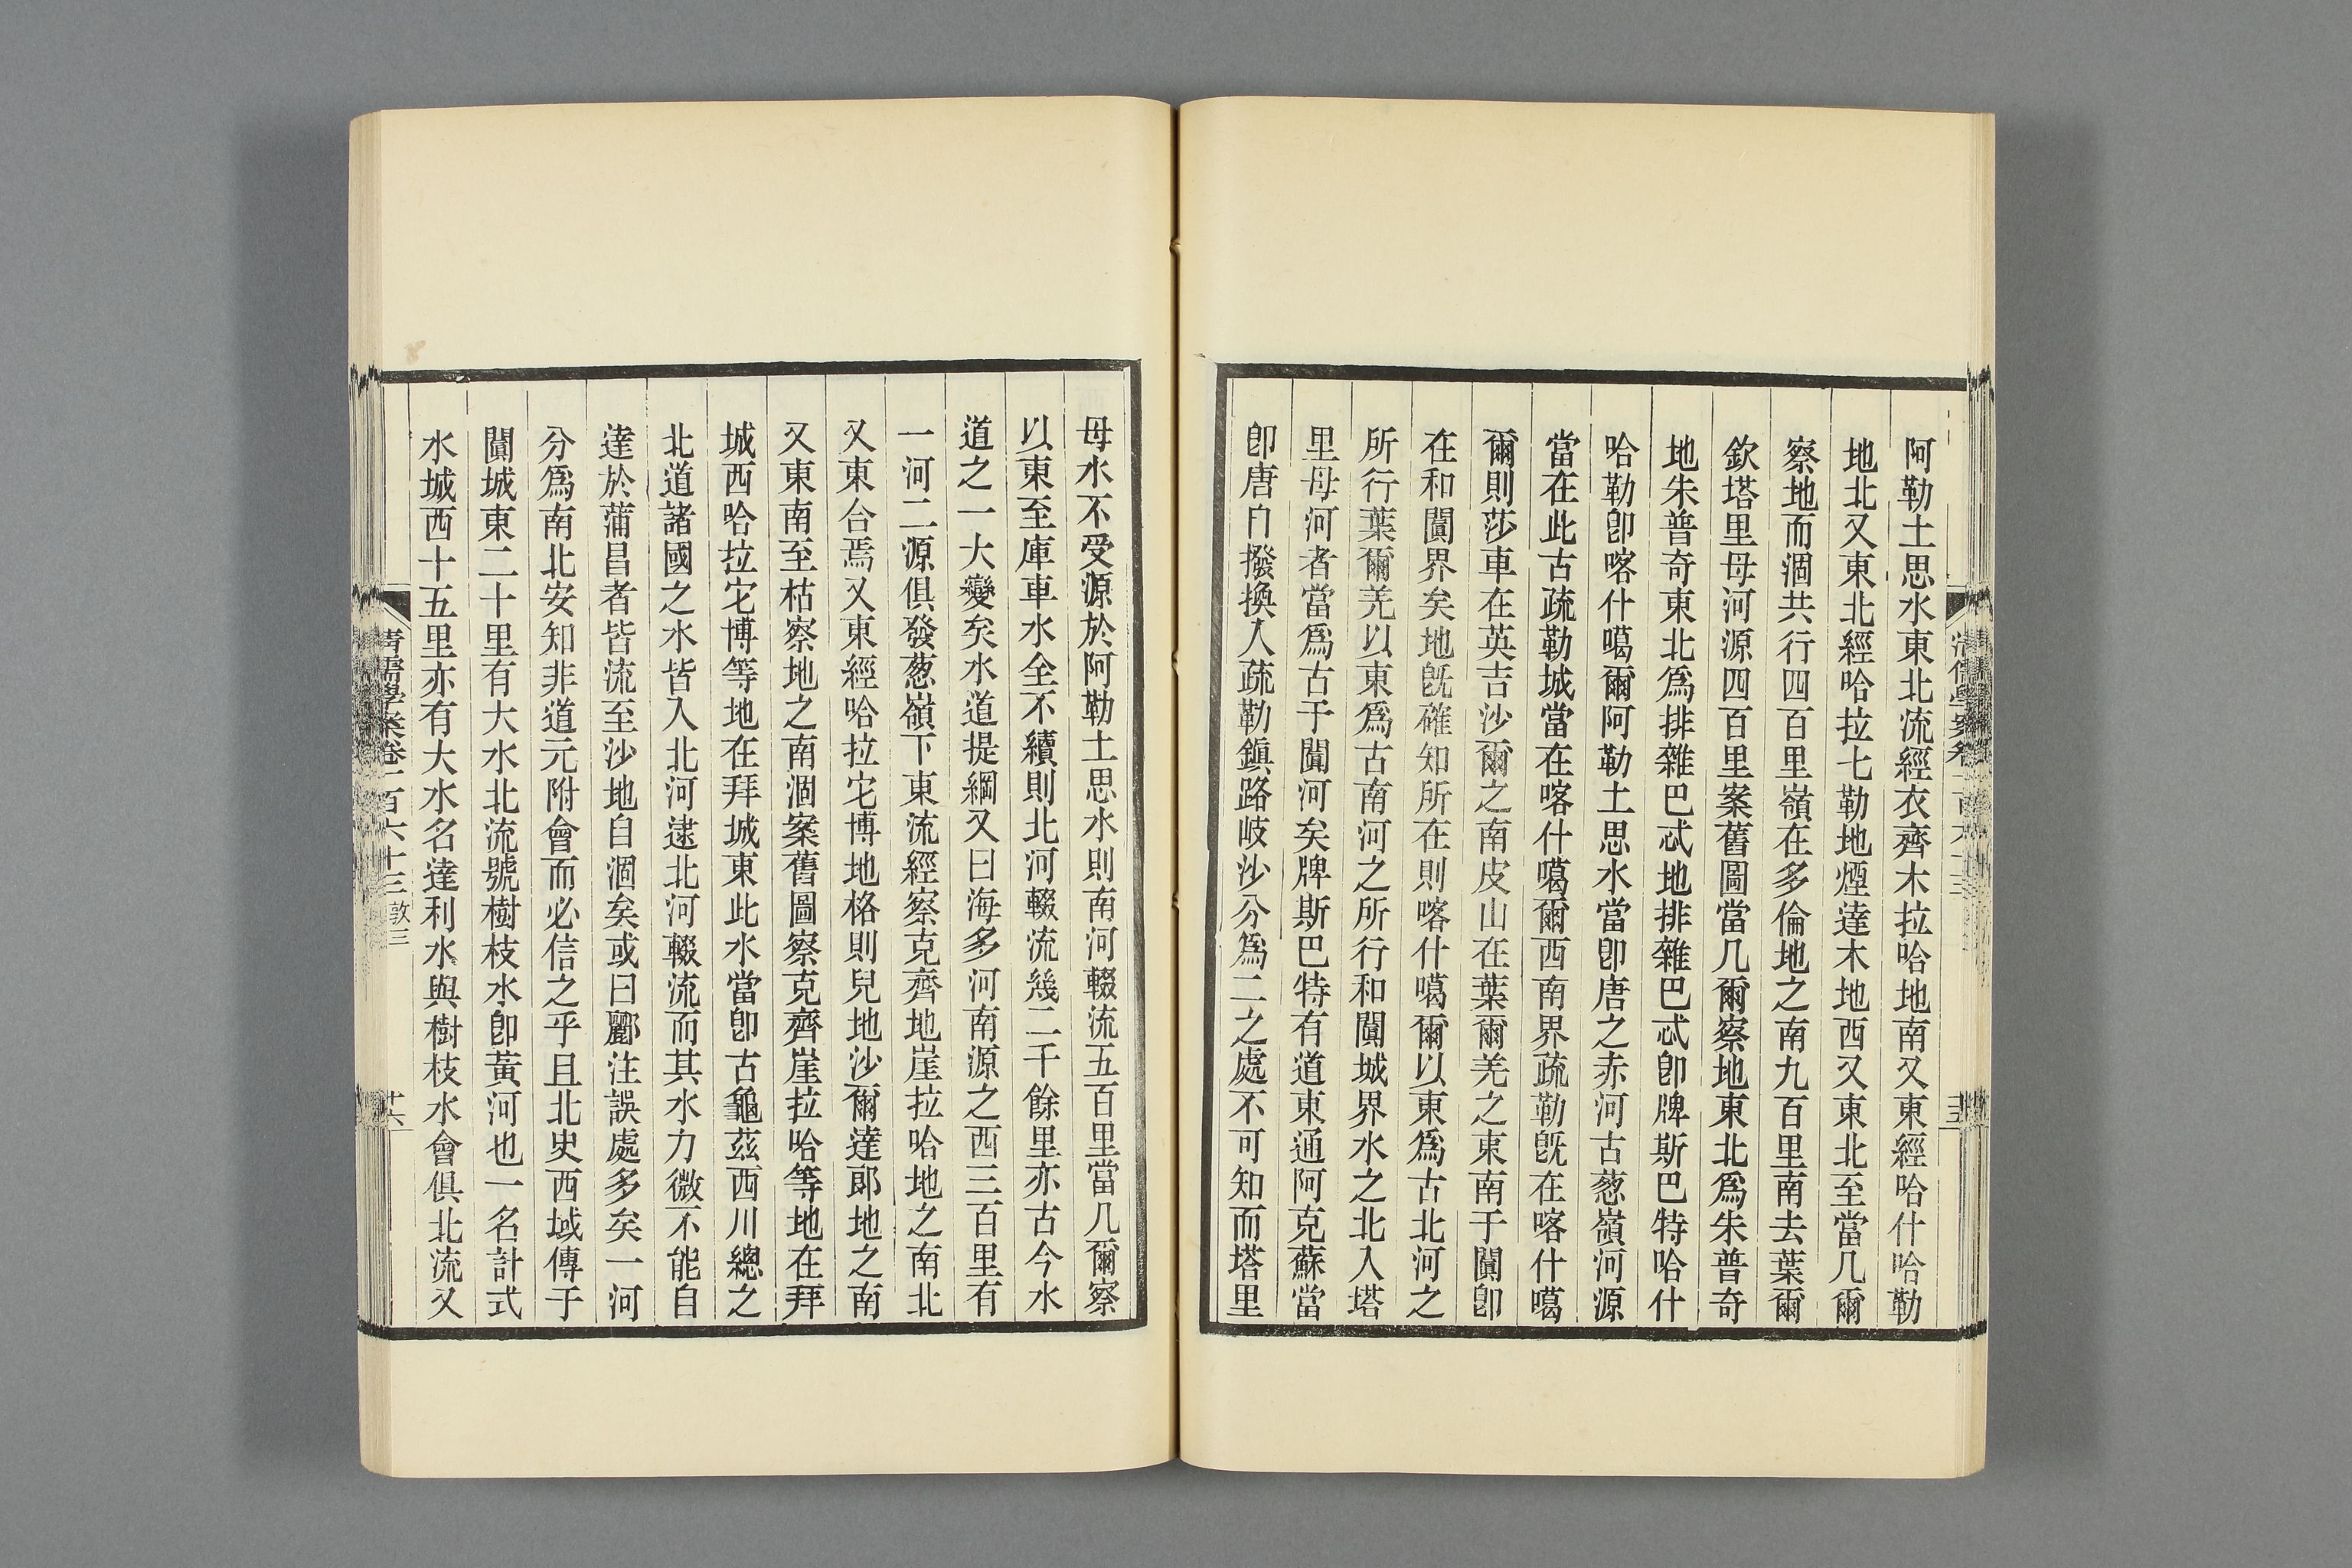 阿勒土思水東北流經衣齊木拉哈地南又東經哈什哈勒
地北又東北經哈拉七勒地煙達木地西又東北至當几爾
察地而涸共行四百里嶺在多倫地之南九百里南去葉爾
欽塔里母河源四百里案舊圖當几爾察地東北爲朱普奇
地朱普奇東北爲排雜巴忒地排雜巴忒卽牌斯巴特哈什
哈勒卽喀什噶爾阿勒土思水當卽唐之赤河古葱嶺河源
當在此古疏勒城當在喀什噶爾西南界疏勒旣在喀什噶
爾則莎車在英吉沙爾之南皮山在葉爾羌之東南于闐卽
在和闐界矣地旣確知所在則喀什噶爾以東爲古北河之
所行葉爾羌以東爲古南河之所行和闐城界水之北入塔
里母河者當爲古于闐河矣牌斯巴特有道東通阿克蘇當
卽唐自撥換入疏勒鎭路岐沙分爲二之處不可知而塔里
母水不受源於阿勒土思水則南河輟流五百里當几爾察
以東至庫車水全不續則北河輟流幾二千餘里亦古今水
道之一大變矣水道提綱又曰海多河南源之西三百里有
一河二源俱發葱嶺下東流經察克齊地崖拉哈地之南北
又東合焉又東經哈拉它博地格則兒地沙爾達郎地之南
又東南至枯察地之南涸案舊圖察克齊崖拉哈等地在拜
城西哈拉它博等地在拜城東此水當卽古龜茲西川總之
北道諸國之水皆入北河逮北河輟流而其水力微不能自
達於蒲昌者皆流至沙地自涸矣或曰酈注誤處多矣一河
分爲南北安知非道元附會而必信之乎且北史西域傳于
闐城東二十里有大水北流號樹枝水卽黃河也一名計式
水城西十五里亦有大水名達利水與樹枝水會俱北流又
清儒學案卷一百六十三 敦三
十六